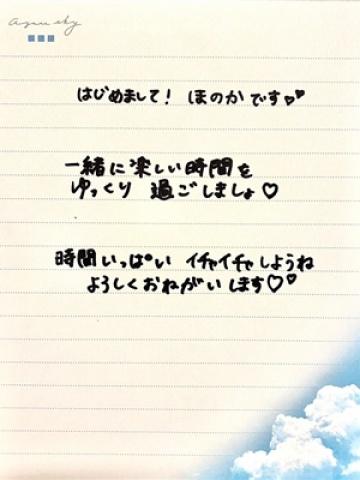 azure sky
はじめまして! ほのかです♡♡
一緒に楽しい時間を
ゆっくり 過ごしましょ♡
時間いっぱい イチャイチャしようね
よろしくおねがいします♡♡